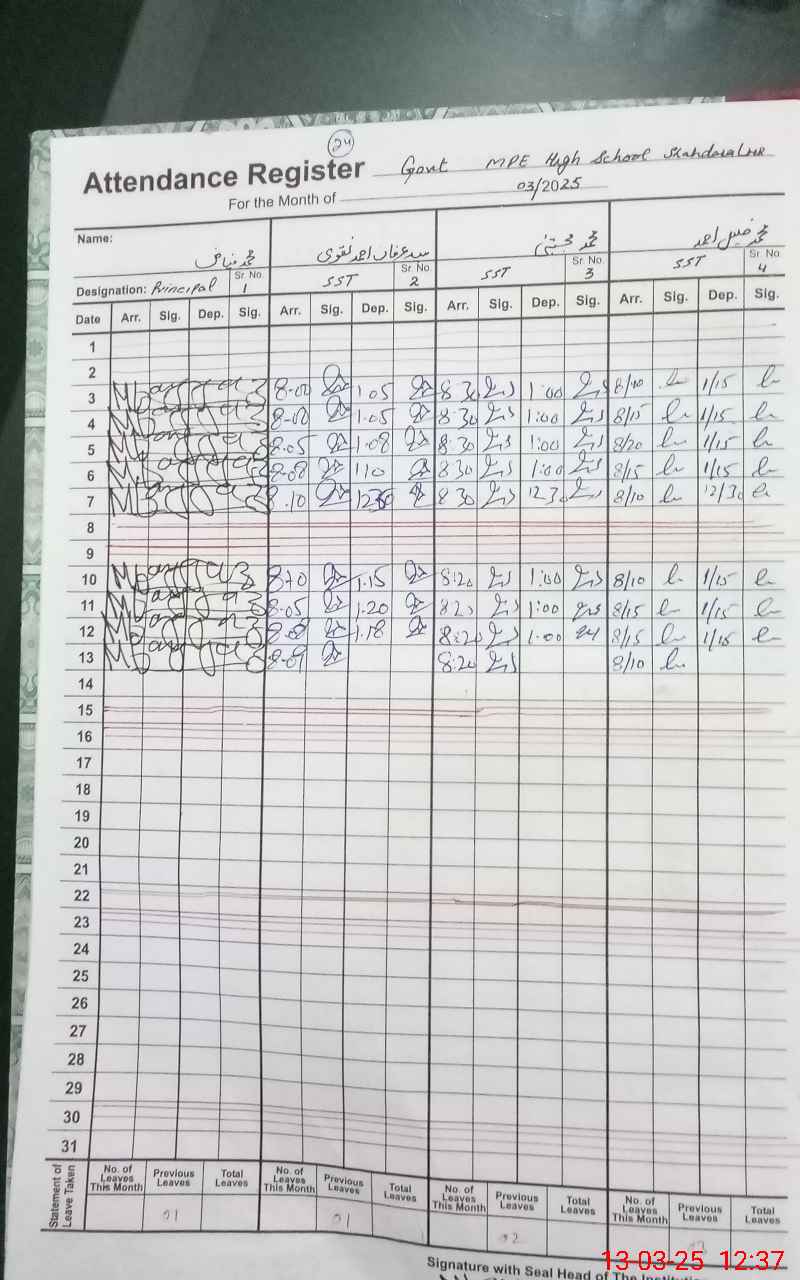 24
Attendance Register Govt MPE High School
For the Month of 03/2025
Name: محمد فیاض سید عرفان احمد نقوی محمد مجتبیٰ محمد خلیل احمد
Designation: Principal Sr. No. 1 SST Sr. No. 2 SST Sr. No. 3 SST Sr. No. 4
Date Arr. Sig. Dep. Sig. Arr. Sig. Dep. Sig. Arr. Sig. Dep. Sig. Arr. Sig. Dep. Sig.
1
2
3 8-00 1.05 8 30 1:00 8/10 1/15
4 8-00 1.05 8:30 1:00 8/15 1/15
5 8.05 1.08 8:30 1:00 8/20 1/15
6 8-08 110 8 30 1:00 8/15 1/15
7 8.10 1230 8 30 12 30 8/10 12/30
8
9
10 8-10 1.15 8:20 1:00 8/10 1/15
11 8-05 1.20 8 20 1:00 8/15 1/15
12 8-08 1.18 8:20 1.00 8/15 1/15
13 8-09 8:20 8/10
14
15
16
17
18
19
20
21
22
23
24
25
26
27
28
29
30
31
Statement of Leave Taken
No. of Leaves This Month Previous Leaves Total Leaves No. of Leaves This Month Previous Leaves Total Leaves No. of Leaves This Month Previous Leaves Total Leaves No. of Leaves This Month Previous Leaves Total Leaves
01 01 02
Signature with Seal Head of The
13-03-25 12:37